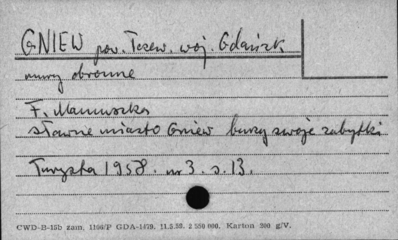 GNIEW pow. Tczew. woj. Gdańsk
mury obronne
F. Mamuszka
Sławne miasto Gniew burzy swoje zabytki
Turysta 1958. nr 3. s. 13.
CWD-B-15b zam. 1106/P GDA-1479. 11.5.59. 2 550 000. Karton 200 g/V.